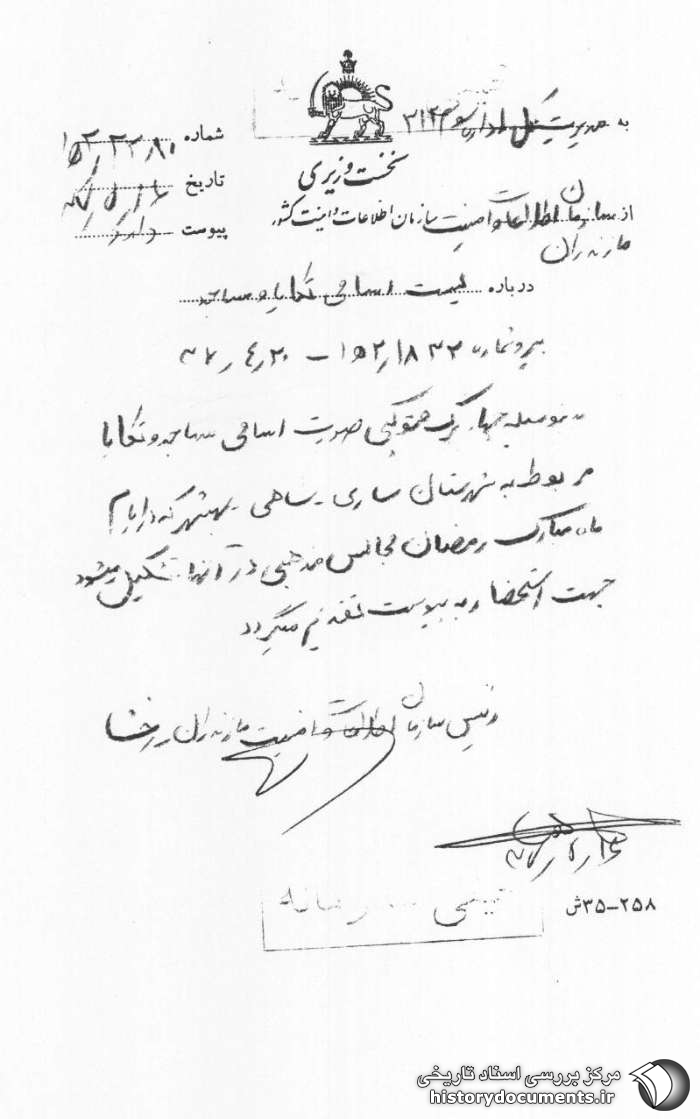 به مدیریت کل اداره سوم ۳۱۲
شماره ۱۵۲/۲۳۸۰
نخست وزیری
تاریخ ۴۷/۵/۱۶
از سازمان اطلاعات و امنیت سازمان اطلاعات و امنیت کشور
مازندران
پیوست دارد
درباره لیست اسامی تکایا و مساجد
پیرو شماره ۱۵۲/۱۸۳۳ – ۴۷/۴/۲۰
بدینوسیله چهار برگ فتوکپی صورت اسامی مساجد و تکایا
مربوط به شهرستان ساری - شاهی - بهشهر که در ایام
ماه مبارک رمضان مجالس مذهبی در آنها تشکیل میشود
جهت استحضار به پیوست تقدیم میگردد
رئیس سازمان اطلاعات و امنیت مازندران
۲۵۸–۳۵ش
مرکز بررسی اسناد تاریخی
historydocuments.ir